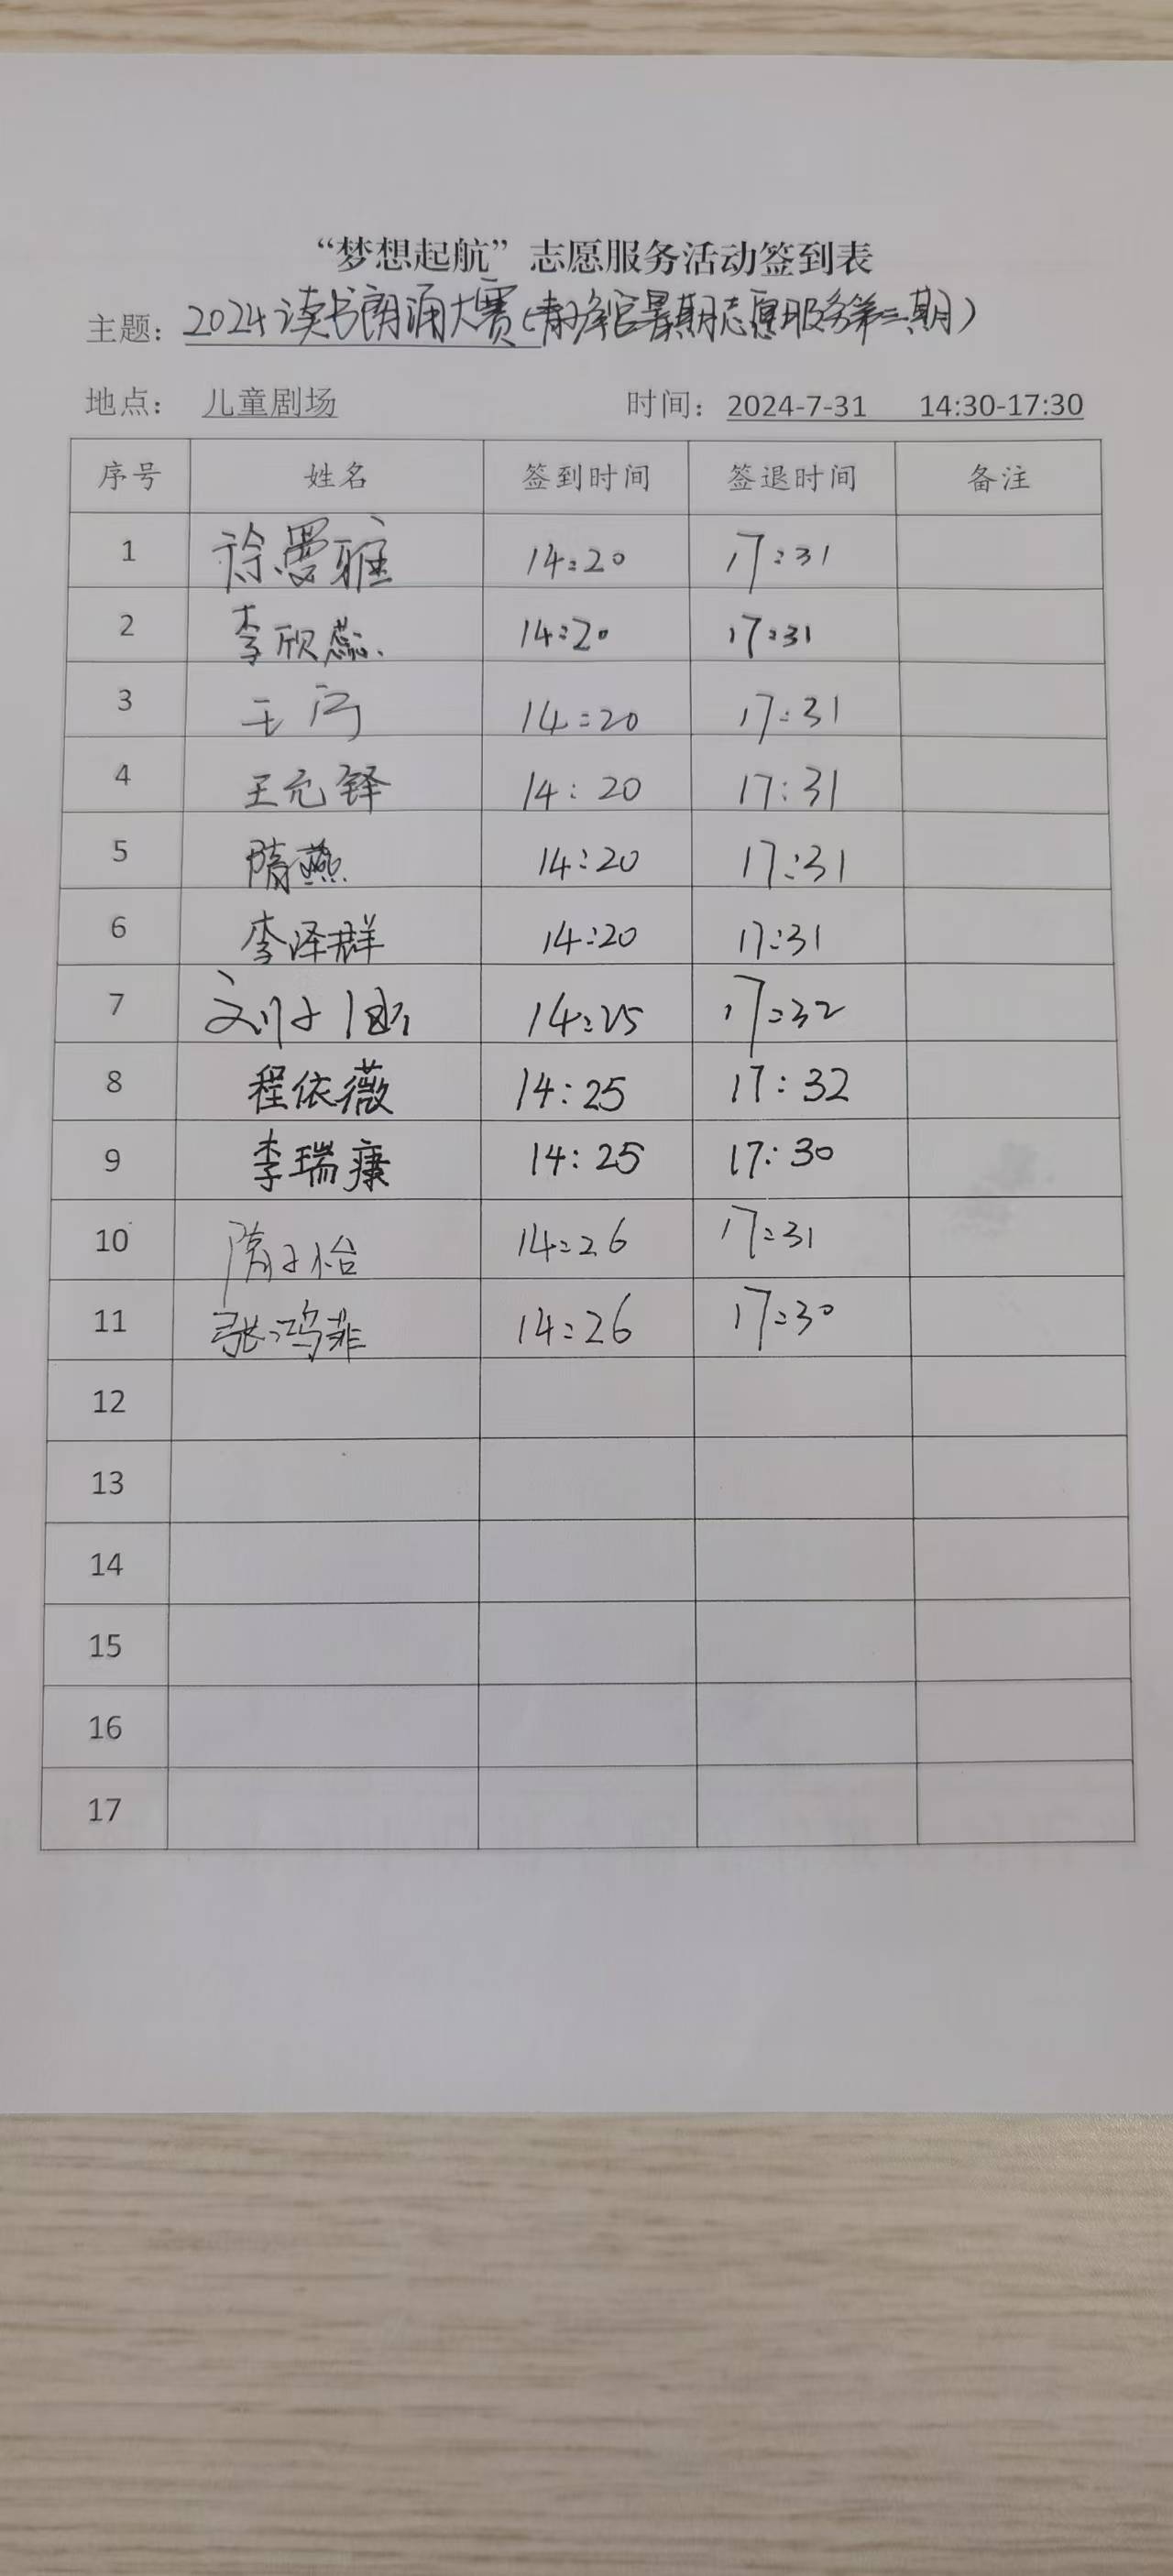 “梦想起航”志愿服务活动签到表
主题：2024读书朗诵大赛（青少年宫暑期志愿服务第三期）
地点： 儿童剧场 时间：2024-7-31 14:30-17:30
序号 姓名 签到时间 签退时间 备注
1 徐曼雅 14:20 17:31
2 李欣蕊 14:20 17:31
3 王 14:20 17:31
4 王允铎 14:20 17:31
5 隋燕 14:20 17:31
6 李泽群 14:20 17:31
7 刘子涵 14:25 17:32
8 程依薇 14:25 17:32
9 李瑞康 14:25 17:30
10 隋子怡 14:26 17:31
11 张鸿菲 14:26 17:30
12
13
14
15
16
17